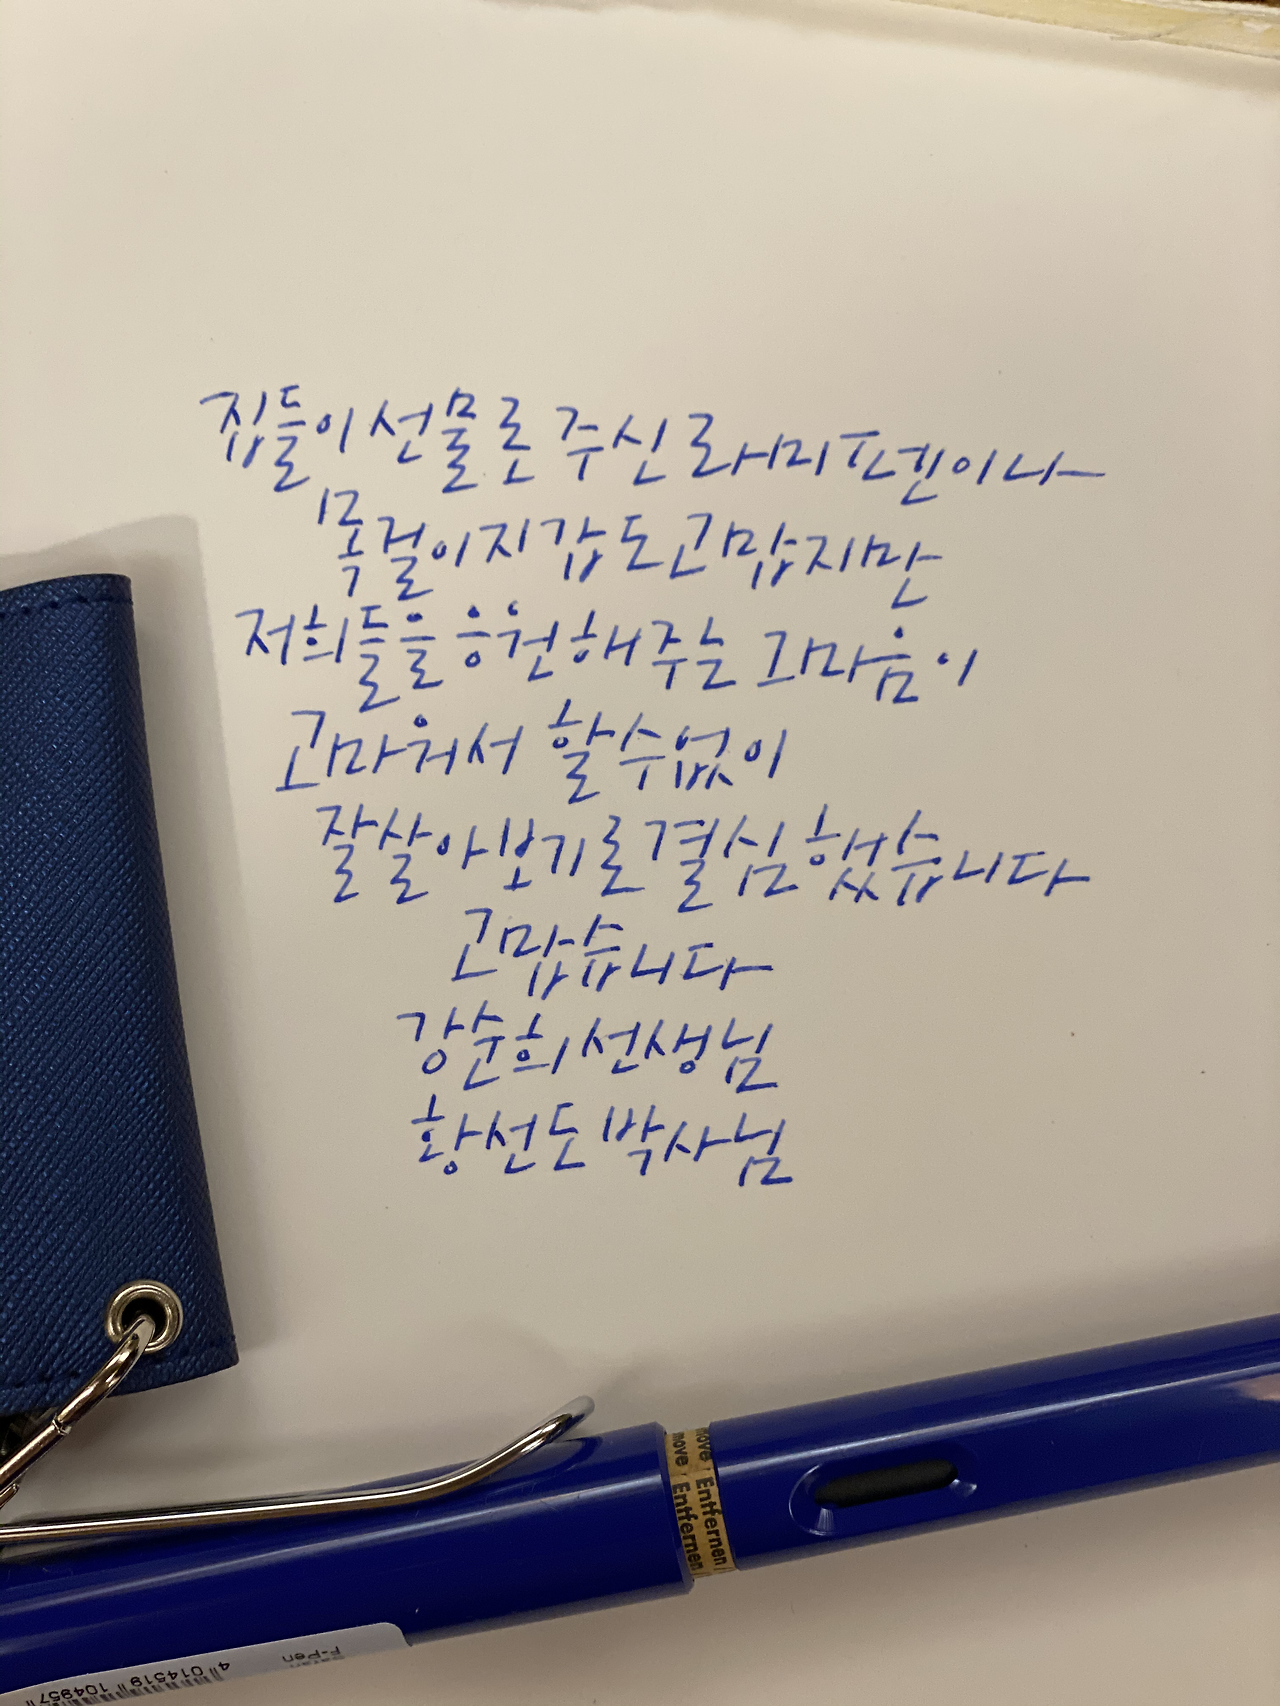 집들이 선물로 주신 라미 펜이나
목걸이지갑도 고맙지만
저희들을 응원해주는 그 마음이
고마워서 할 수 없이
잘 살아보기로 결심했습니다
고맙습니다
강순희 선생님
황선도 박사님
move / Entfernen /
move / Entfernen
F-Pen
4 014519 104957